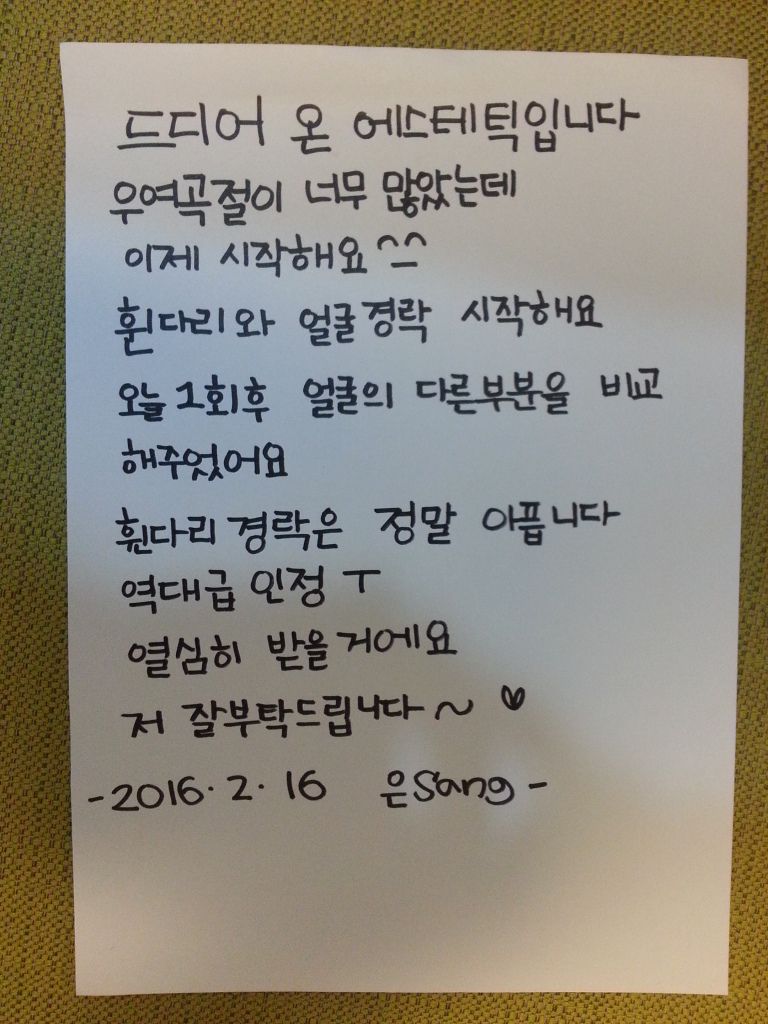 드디어 온 에스테틱입니다
우여곡절이 너무 많았는데
이제 시작해요^^
휜다리와 얼굴경락 시작해요
오늘 1회후 얼굴의 다른부분을 비교
해주었어요
휜다리 경락은 정말 아픕니다
역대급 인정 ㅜ
열심히 받을거에요
저 잘부탁드립니다~ ♥
-2016.2.16 은sang-